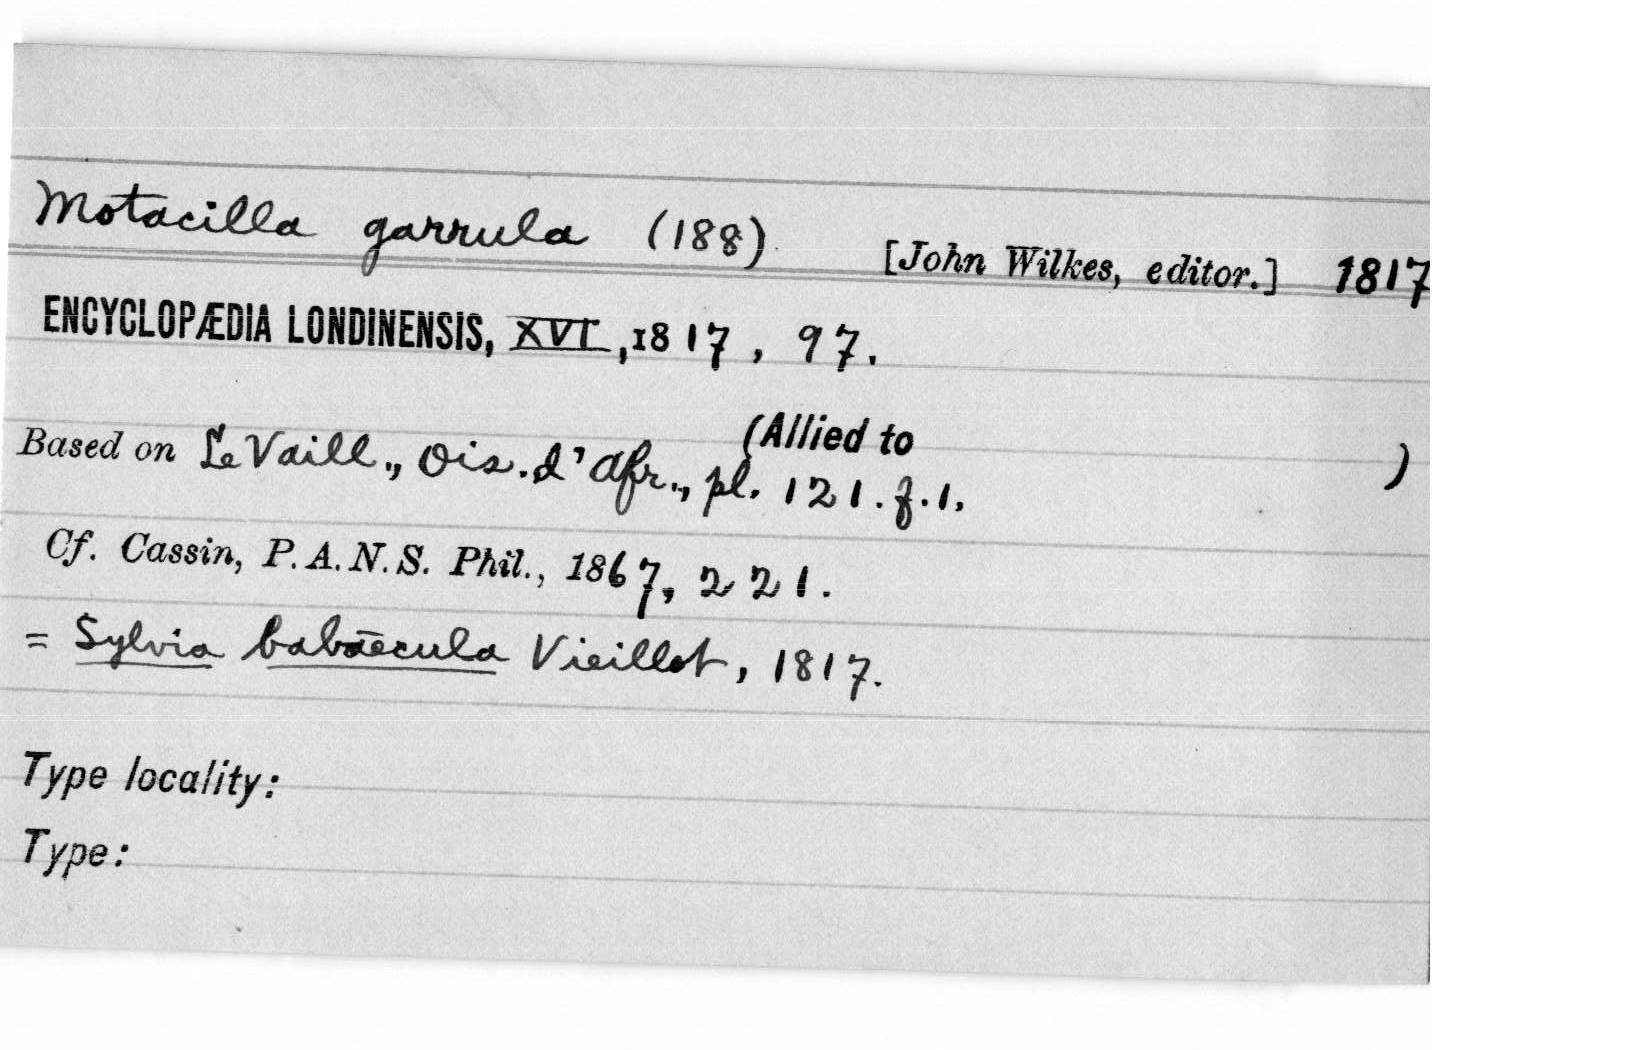 Motacilla garrula (188) [John Wilkes, editor.] 1817
ENCYCLOPÆDIA LONDINENSIS, XVI, 1817, 97.
(Allied to )
Based on Le Vaill., Ois. d'Afr., pl. 121. f. 1.
Cf. Cassin, P. A. N. S. Phil., 1867, 221.
= Sylvia babæcula Vieillot, 1817.
Type locality:
Type: